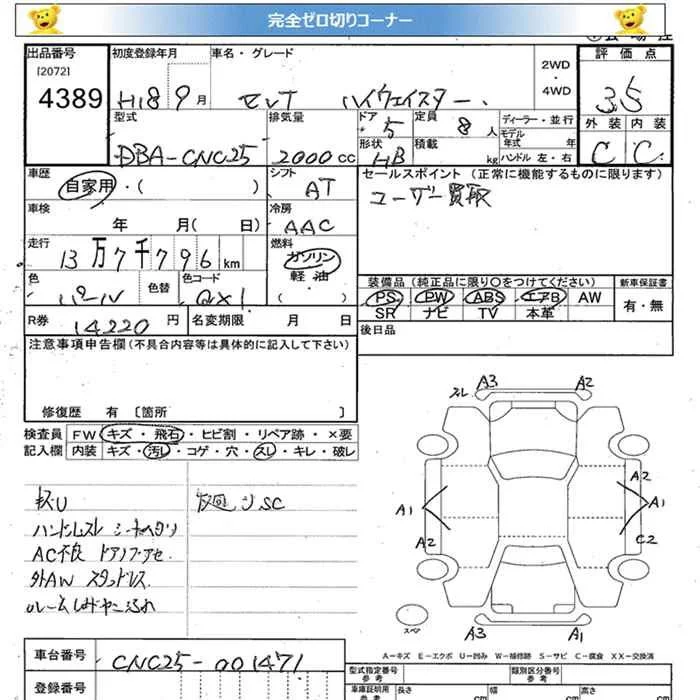 完全ゼロ切りコーナー
出品番号 初度登録年月 車名・グレード 2WD ・ 4WD 評価点
[2072]
4389 H18 9月 セレナ ハイウェイスター 3.5
型式 排気量 ドア 定員 ディーラー・並行 外装 内装
5 8人 モデル年式 年
DBA-CNC25 2000cc 形状 HB 積載 kg ハンドル 左・右 C C
車歴 シフト セールスポイント (正常に機能するものに限ります)
自家用・( ) AT ユーザー買取
車検 冷房
年 月(日) AAC
走行 燃料
13万7千796km ガソリン 軽油 ( )
色 色替 色コード 装備品 (純正品に限り○をつけてください) 新車保証書
パール QX1 PS PW ABS エアB AW 有・無
SR ナビ TV 本革
R券 14220円 名変期限 月 日 後日品
注意事項申告欄 (不具合内容等は具体的に記入して下さい)
修復歴 有 [箇所 ]
検査員 FW キズ・飛石・ヒビ割・リペア跡・×要
記入欄 内装 キズ・汚し・コゲ・穴・スレ・キレ・破レ
スレ A3 A2
A2
A1 A1
A2 C2
キズU
ハンドルスレ
AC不良
外AW スタッドレス
スペア A3 A1
A-キズ E-エクボ U-凹み W-補修跡 S-サビ C-腐食 XX-交換済
車台番号 CNC25-001471
登録番号
型式指定番号 参考 類別区分番号 参考
車庫証明用 参考 長さ cm 幅 cm 高さ cm